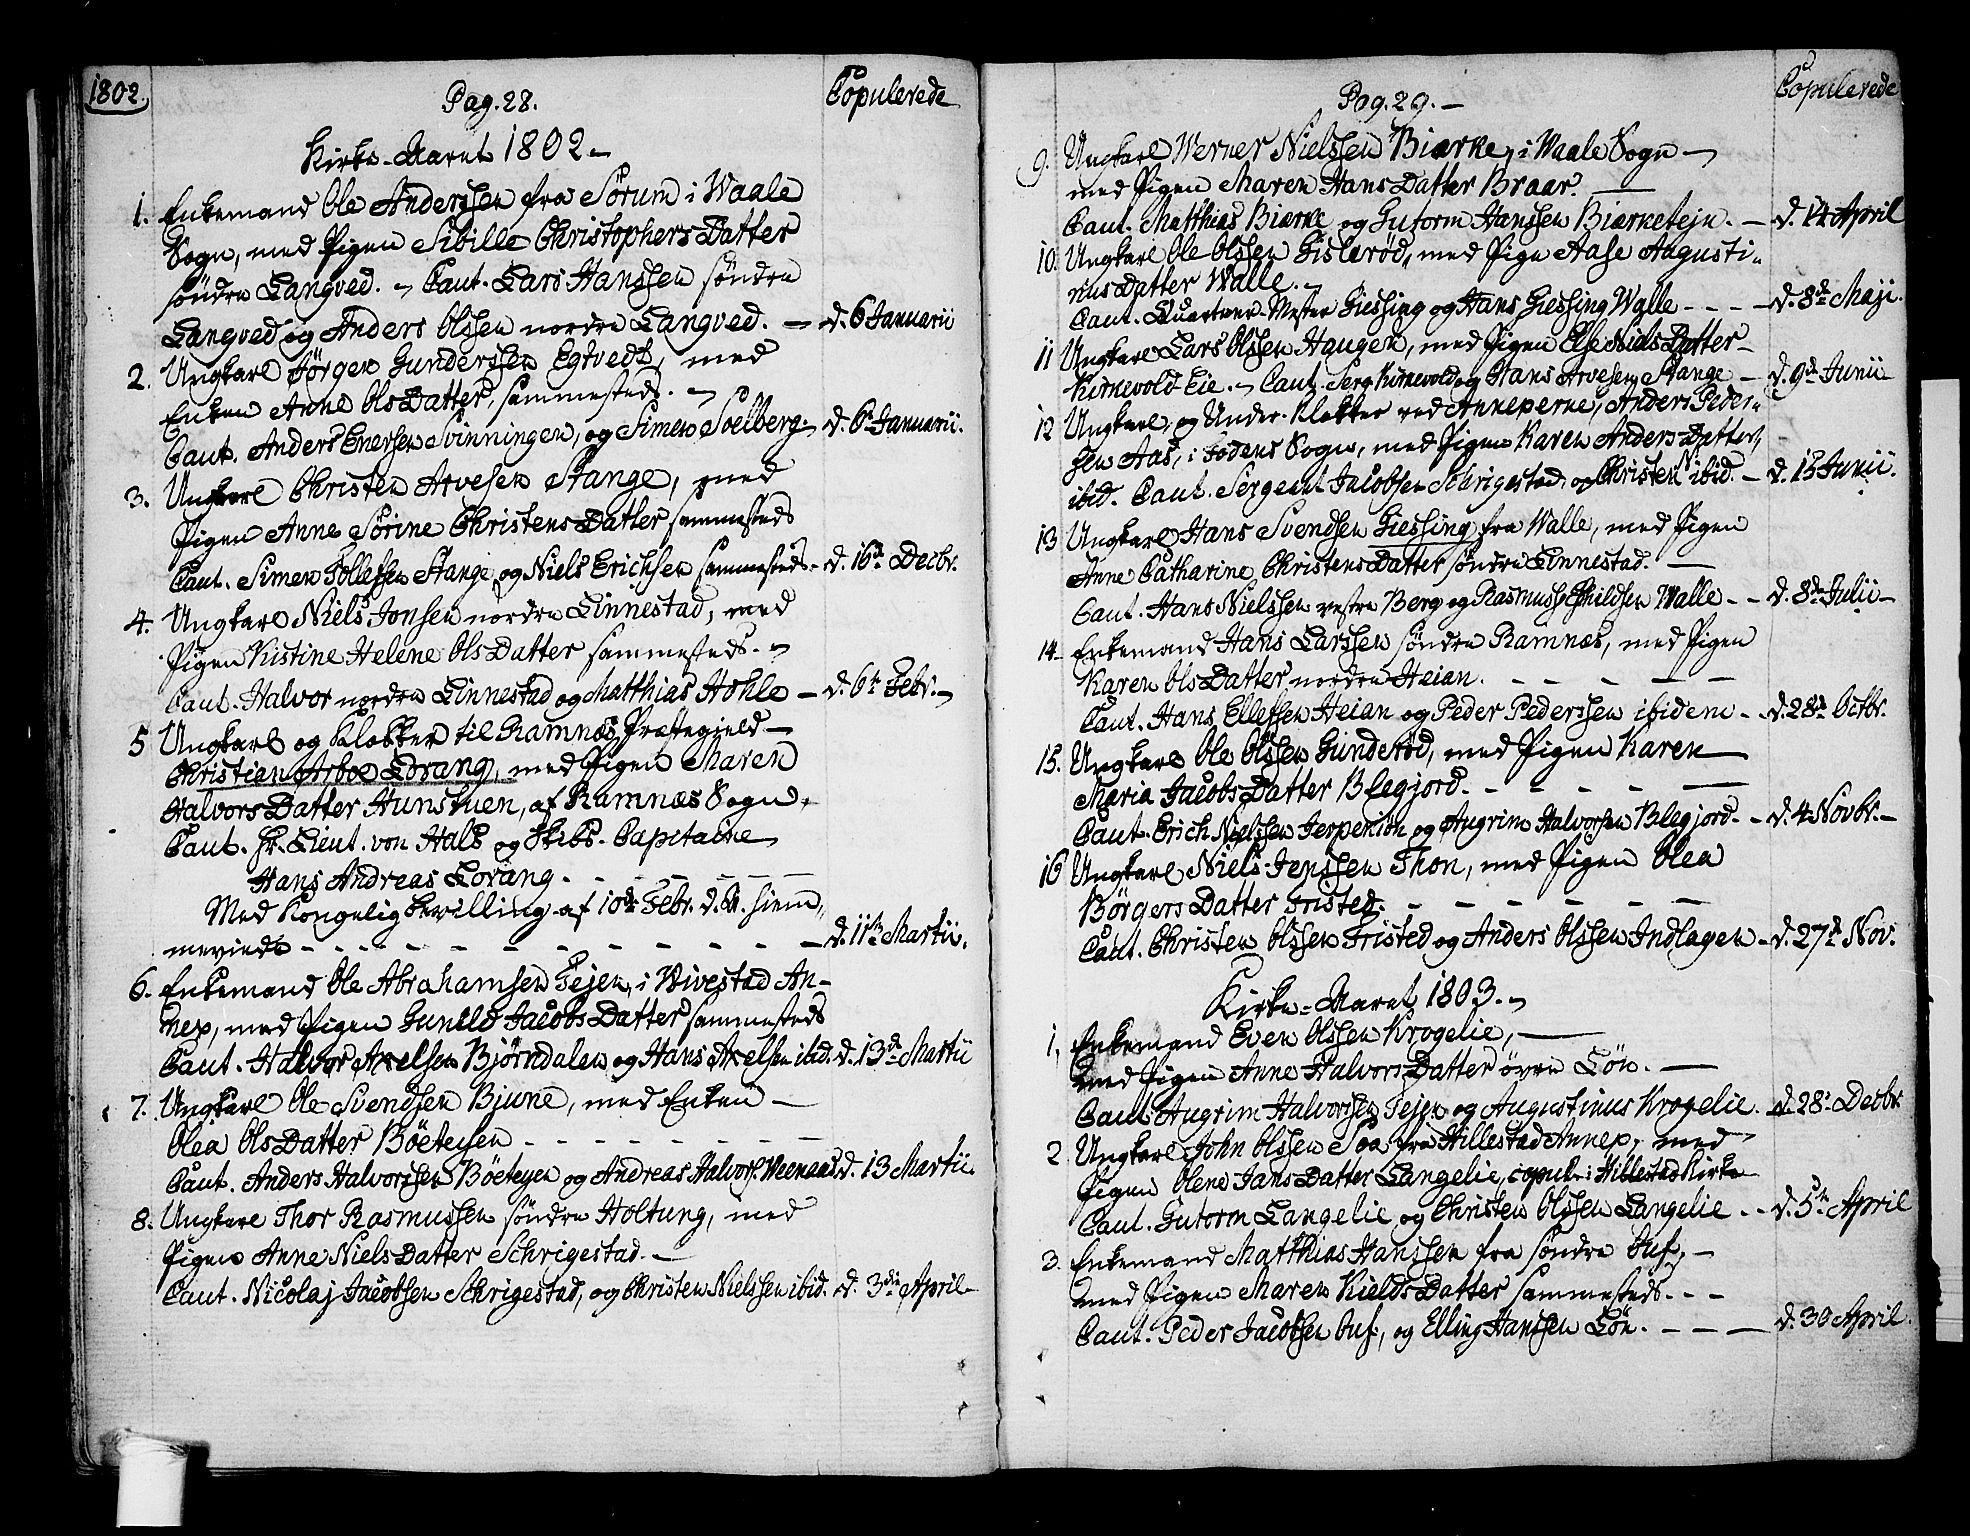 1802.
Pag. 28.
Copulerede
Kirke-Aaret 1802.
1. Enkemand Ole Anderssen fra Sørum i Waale
Sogn, med Pigen Sibille Christophers Datter
søndre Langved. Caut. Lars Hanssen søndre
Langved og Anders Olssen nordre Langved. — d. 6 Januarii
2. Ungkarl Jørgen Gunderssen Egtvedt, med
Enken Anne Ols Datter, sammesteds.
Caut. Anders Enersen Svinningen, og Simen Soelberg. d. 6te Januarii.
3. Ungkarl Christen Arvesen Stange, med
Pigen Anne Sørine Christens Datter sammesteds
Caut. Simen Tollefsen Stange og Niels Erichsen sammesteds. d. 16de Decbr.
4. Ungkarl Niels Jonsen nordre Linnestad, med
Pigen Kistine Helene Ols Datter sammesteds.
Caut. Halvor nordre Linnestad og Matthias Hohle — d. 6te Febr.
5 Ungkarl og Klokker til Ramnæs Præstegield —
Christian Arboe Lorang, med Pigen Maren
Halvors Datter Hunstuen, af Ramnæs Sogn,
Caut. Hr. Lieut. von Hals og Skibs-Capitaine
Hans Andreas Lorang.
Med Kongelig bevilling af 10de Febr. d. A. hiem,,
meviede — d. 11te Martii.
6. Enkemand Ole Abrahamsen Tejen, i Vivestad An-
nex, med Pigen Gunild Jacobs Datter sammesteds
Caut. Halvor Axelsen Bjørndalen og Hans Axelsen ibid. d. 13de Martii
7. Ungkarl Ole Svendsen Bjune, med Enken —
Olea Ols Datter Böeteyen
Caut. Anders Halvorssen Böeteyen og Andreas Halvors. Weenaas d. 13 Martii.
8. Ungkarl Thor Rasmussen søndre Holtung, med
Pigen Anne Niels Datter Schrigestad. —
Caut. Nicolaj Jacobsen Schrigestad, og Christen Nielssen ibid. d. 3die April
Pag. 29. —
Copulerede
9. Ungkarl Werner Nielssen Biærke, i Waale Sogn —
med Pigen Maren Hans Datter Braar. —
Caut. Matthias Biærke og Gutorm Hanssen Biærketejn. — d. 14 April
10. Ungkarl Ole Olssen Gislerød, med Pige Aase Augusti-
nus Datter Walle.
Caut. Quarteer-Mester Giessing og Hans Giessing Walle — d. 8de Maji.
11 Ungkarl Lars Olssen Haugen, med Pigen Else Niels Datter —
Kirnevold Eie. Caut. Serg. Kirnevold og Hans Arvesen Stange — d. 9de Junii
12 Ungkarl, og Under-Klokker ved Annexerne, Anders Peder-
sen Aas, i Fodens Sogn, med Pigen Karen Anders Datter,
ibid. Caut. Sergeant Jacobsen Schrigestad, og Christen N. ibid. — d. 15 Junii.
13 Ungkarl Hans Svendsen Giessing fra Walle, med Pigen
Anne Catharine Christens Datter søndre Linnestad. —
Caut. Hans Nielssen vestre Berg og Rasmus Eschildsen Walle — d. 8de Julii —
14 Enkemand Hans Larssen søndre Ramnæs, med Pigen
Karen Ols Datter nordre Heian.
Caut. Hans Ellefsen Heian og Peder Pederssen ibidem — d. 28de Octbr.
15. Ungkarl Ole Olssen Gunderød, med Pigen Karen
Maria Jacobs Datter Blegjord.
Caut. Erich Nielssen Jerpeniön og Augrim Halvorsen Blegjord. — d. 4 Novbr. —
16 Ungkarl Niels Jenssen Thon, med Pigen Olea
Börgers Datter Fristed.
Caut. Christen Olssen Fristed og Anders Olssen Indlagen — d. 27de Nov.
Kirke-Aaret 1803.
1. Enkemand Even Olssen Krogelie, —
med Pigen Anne Halvors Datter øvre Lön. —
Caut. Augrim Halvorsen Tejen og Augustinus Krogelie. d. 28de Decbr.
2. Ungkarl John Olssen Soa, fra Hillestad Annex, med
Pigen Olene Jans Datter Langelie, copul. i Hillestad Kirke
Caut. Gutorm Langelie og Christen Olssen Langelie — d. 5te April
3. Enkemand Matthias Hanssen fra søndre Buf, —
med Pigen Maren Kields Datter sammesteds.
Caut. Peder Jacobsen Buf, og Elling Hanssen Lön. — d. 30 April.